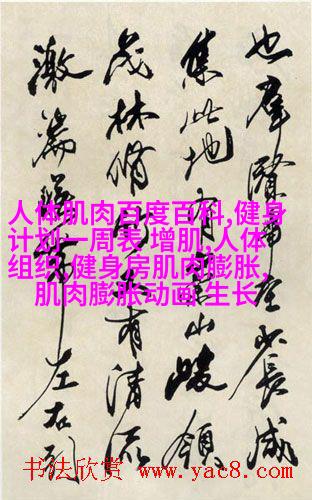 也群賢畢至少長咸
集此地有崇山峻領
茂林脩竹又有清流
激湍暎帶左右引
人体肌肉百度百科,健身
计划一周表 增肌,人体
组织,健身房肌肉膨胀,
肌肉膨胀动画 生长
书法欣赏 www.yac8.com